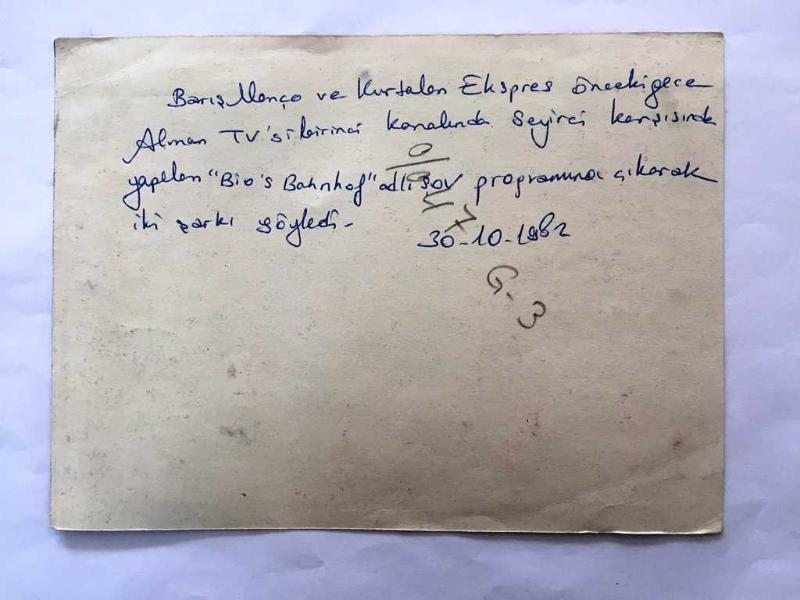 Barış Manço ve Kurtalan Ekspres önceki gece
Alman TV'si birinci kanalında seyirci karşısında
yapılan "Bio's Bahnhof" adlı şov programına çıkarak
iki şarkı söyledi-
30-10-1982
G-3